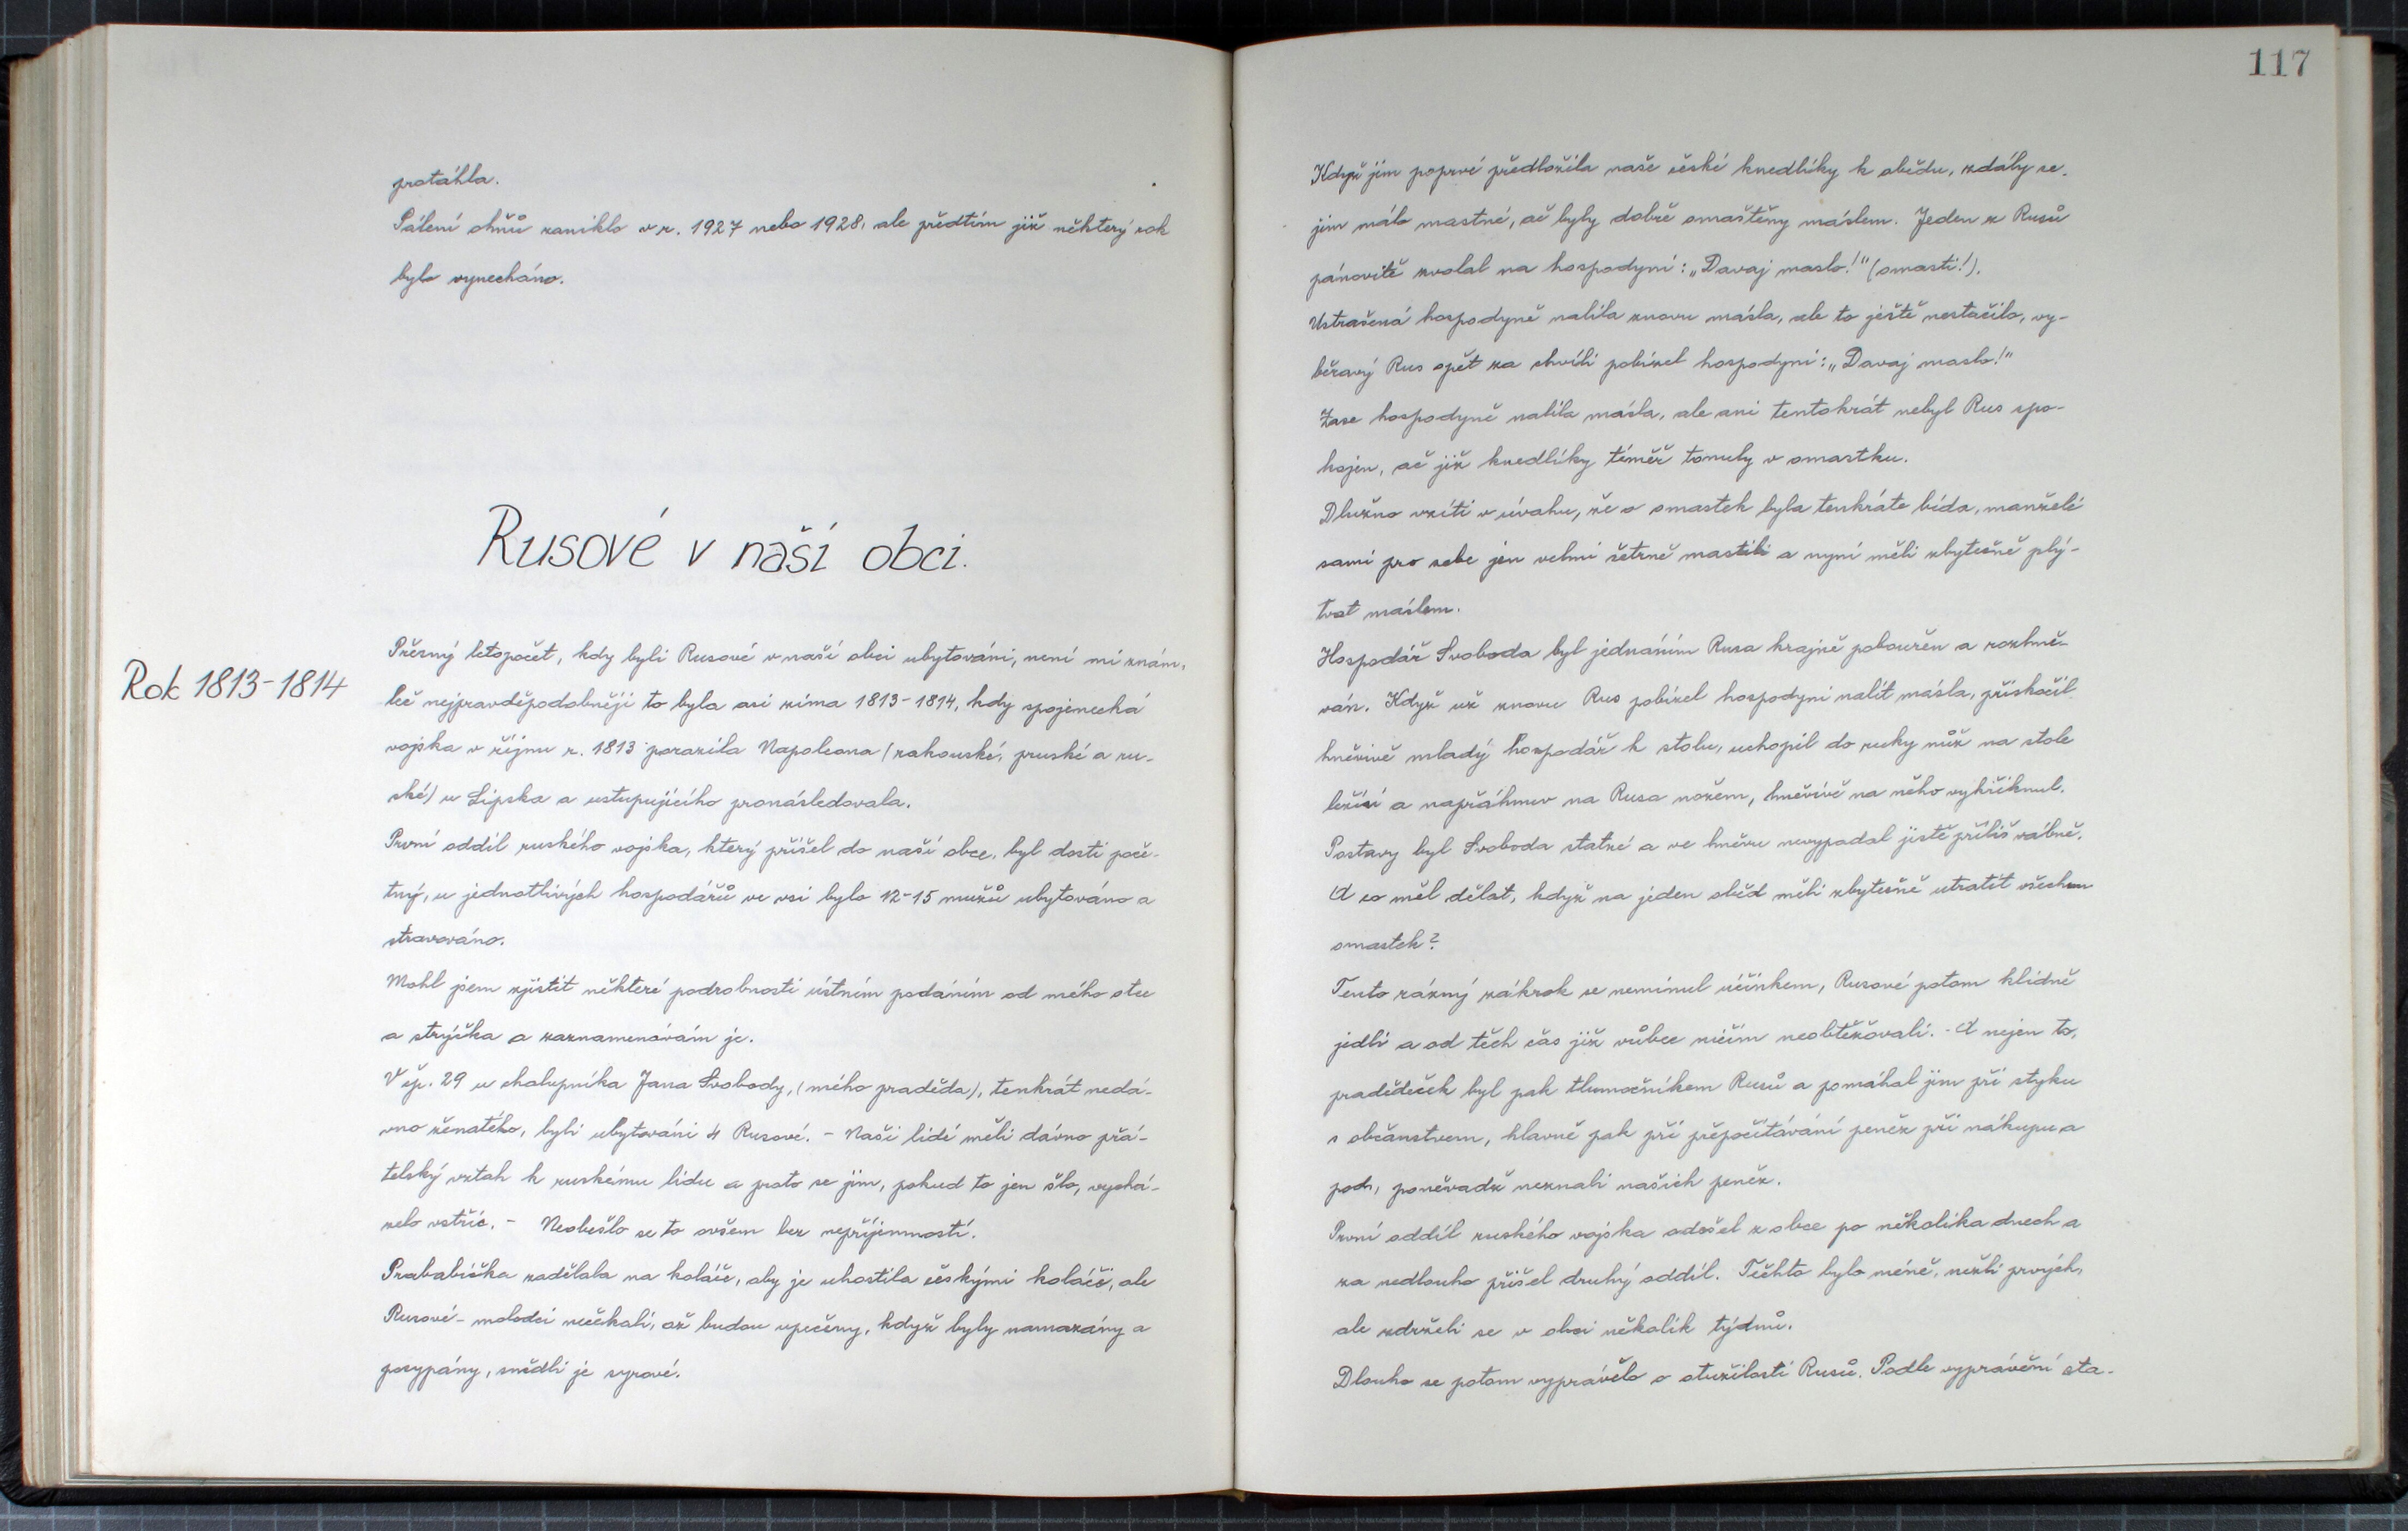 protáhla.
Pálení ohňů zaniklo v r. 1927 nebo 1928, ale předtím již některý rok
bylo vynecháno.
Rusové v naší obci.
Rok 1813-1814
Přesný letopočet, kdy byli Rusové v naší obci ubytováni, není mi znám,
leč nejpravděpodobněji to byla asi zima 1813-1814, kdy spojenecká
vojska v říjnu r. 1813 porazila Napoleona (rakouské, pruské a ru-
ské) u Lipska a ustupujícího pronásledovala.
První oddíl ruského vojska, který přišel do naší obce, byl dosti poče-
tný, u jednotlivých hospodářů ve vsi bylo 12-15 mužů ubytováno a
stravováno.
Mohl jsem zjistit některé podrobnosti ústním podáním od mého otce
a strýčka a zaznamenávám je.
V čp. 29 u chalupníka Jana Svobody, (mého praděda), tenkrát nedá-
vno ženatého, byli ubytováni 4 Rusové. - Naši lidé měli dávno přá-
telský vztah k ruskému lidu a proto se jim, pokud to jen šlo, vychá-
zelo vstříc. - Neobešlo se to ovšem bez nepříjemností.
Prababička zadělala na koláče, aby je uhostila českými koláči, ale
Rusové - molodci nečekali, až budou upečeny, když byly namazány a
posypány, snědli je syrové.
117
Když jim poprvé předložila naše české knedlíky k obědu, zdály se
jim málo mastné, ač byly dobře omaštěny máslem. Jeden z Rusů
pánovitě zvolal na hospodyni: „Davaj maslo!" (omasti!).
Ustrašená hospodyně nalila znovu másla, ale to ještě nestačilo, vy-
běravý Rus opět za chvíli pobízel hospodyni: „Davaj maslo!"
Zase hospodyně nalila másla, ale ani tentokrát nebyl Rus spo-
kojen, ač již knedlíky téměř tonuly v omastku.
Dlužno vzíti v úvahu, že o omastek byla tenkráte bída, manželé
sami pro sebe jen velmi šetrně mastili a nyní měli zbytečně plý-
tvat máslem.
Hospodář Svoboda byl jednáním Rusa krajně pobouřen a rozhně-
ván. Když už znovu Rus pobízel hospodyni nalít másla, přiskočil
hněvivě mladý hospodář k stolu, uchopil do ruky nůž na stole
ležící a napřáhnuv na Rusa nožem, hněvivě na něho vykřiknul.
Postavy byl Svoboda statné a ve hněvu nevypadal jistě příliš vábně.
A co měl dělat, když na jeden oběd měli zbytečně utratit všechen
omastek?
Tento rázný zákrok se neminul účinkem, Rusové potom klidně
jedli a od těch čas již vůbec ničím neobtěžovali. - A nejen to,
pradědeček byl pak tlumočníkem Rusů a pomáhal jim při styku
s občanstvem, hlavně pak při přepočítávání peněz při nákupu a
pod., poněvadž neznali našich peněz.
První oddíl ruského vojska odešel z obce po několika dnech a
za nedlouho přišel druhý oddíl. Těchto bylo méně, nežli prvých,
ale zdrželi se v obci několik týdnů.
Dlouho se potom vyprávělo o otužilosti Rusů. Podle vyprávění sta-